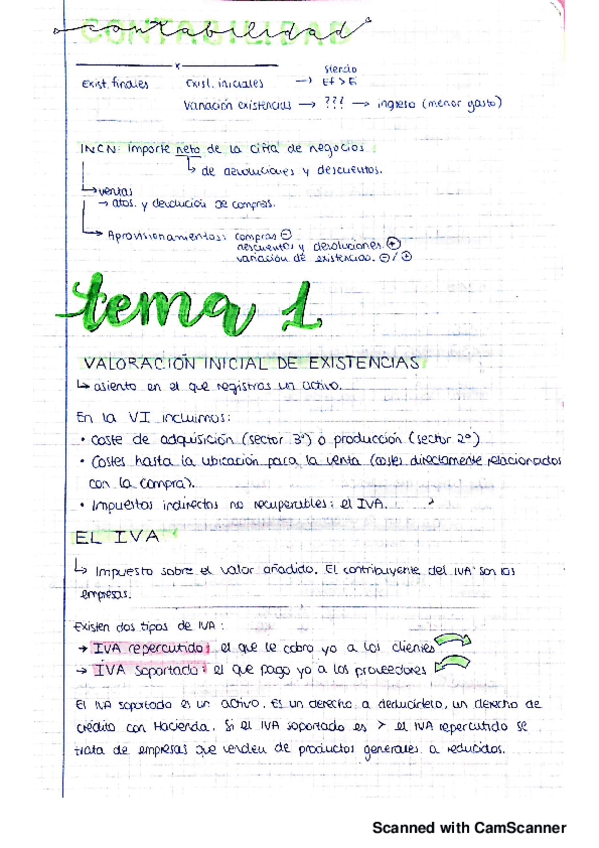 contabilidad
CONTABILIDAD
x
siendo
Exist. finales Exist. iniciales → Ef > Ei
Variación existencias → ??? → ingreso (menor gasto)
INCN: Importe neto de la cifra de negocios
↳ de devoluciones y descuentos.
↳ ventas
→ dtos. y devolución de compras.
↳ Aprovisionamientos: compras ⊖
descuentos y devoluciones ⊕
variación de existencias. ⊖/⊕
tema 1
VALORACIÓN INICIAL DE EXISTENCIAS
↳ asiento en el que registras un activo.
En la VI incluimos:
• Coste de adquisición (sector 3º) ó producción (sector 2º)
• Costes hasta la ubicación para la venta (costes directamente relacionados
con la compra).
• Impuestos indirectos no recuperables: el IVA.
EL IVA
↳ Impuesto sobre el valor añadido. El contribuyente del IVA son las
empresas.
Existen dos tipos de IVA:
→ IVA repercutido: el que le cobro yo a los clientes
→ IVA soportado: el que pago yo a los proveedores
El IVA soportado es un activo. Es un derecho a deducírtelo, un derecho de
crédito con Hacienda. Si el IVA soportado es > el IVA repercutido se
trata de empresas que venden de productos generales a reducidos.
Scanned with CamScanner